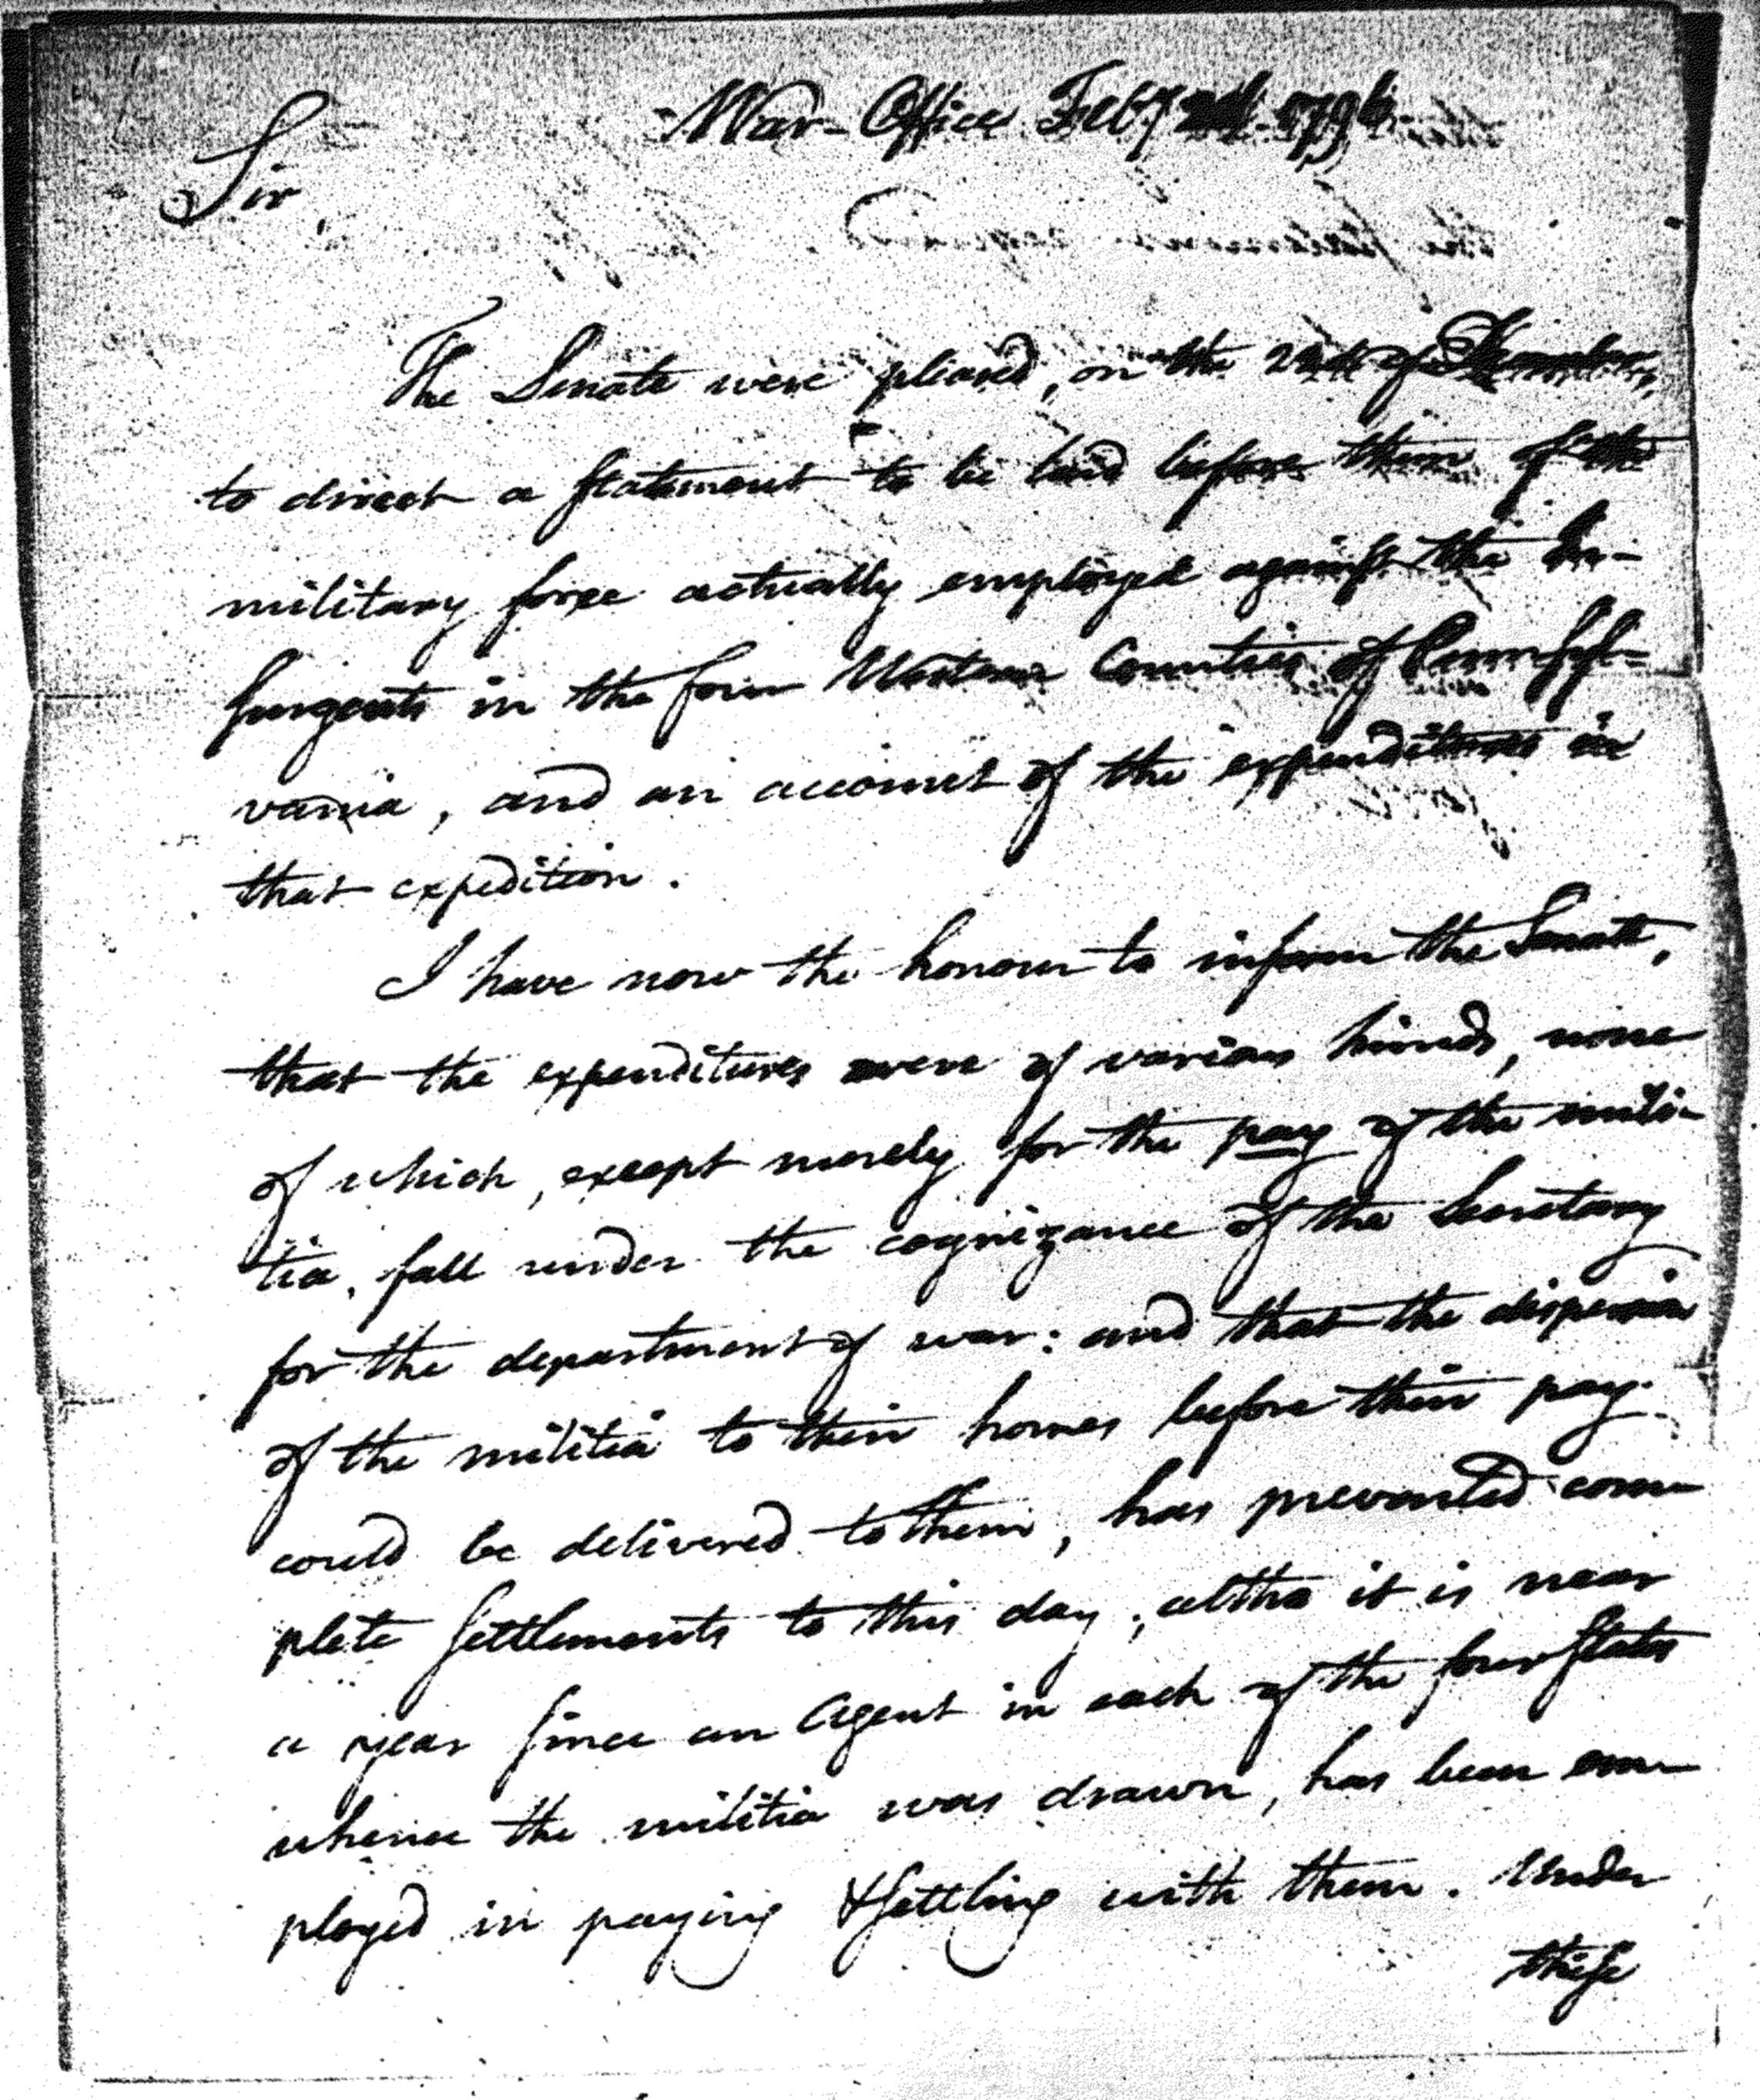 War-Office Feby 2d. 1796.
Sir,
The Senate were pleased, on the 22d of December,
to direct a statement to be laid before them of the
military force actually employed against the In-
surgents in the four Western Counties of Pennsyl-
vania, and an account of the expenditures in
that expedition.
I have now the honour to inform the Senate,
that the expenditures were of various kinds, none
of which, except merely for the pay of the mili-
tia, fall under the cognizance of the Secretary
for the department of war: and that the dispersion
of the militia to their homes before their pay
could be delivered to them, has prevented com-
plete settlements to this day; altho it is near
a year since an Agent in each of the four States
whence the militia was drawn, has been em-
ployed in paying & settling with them. Under
these